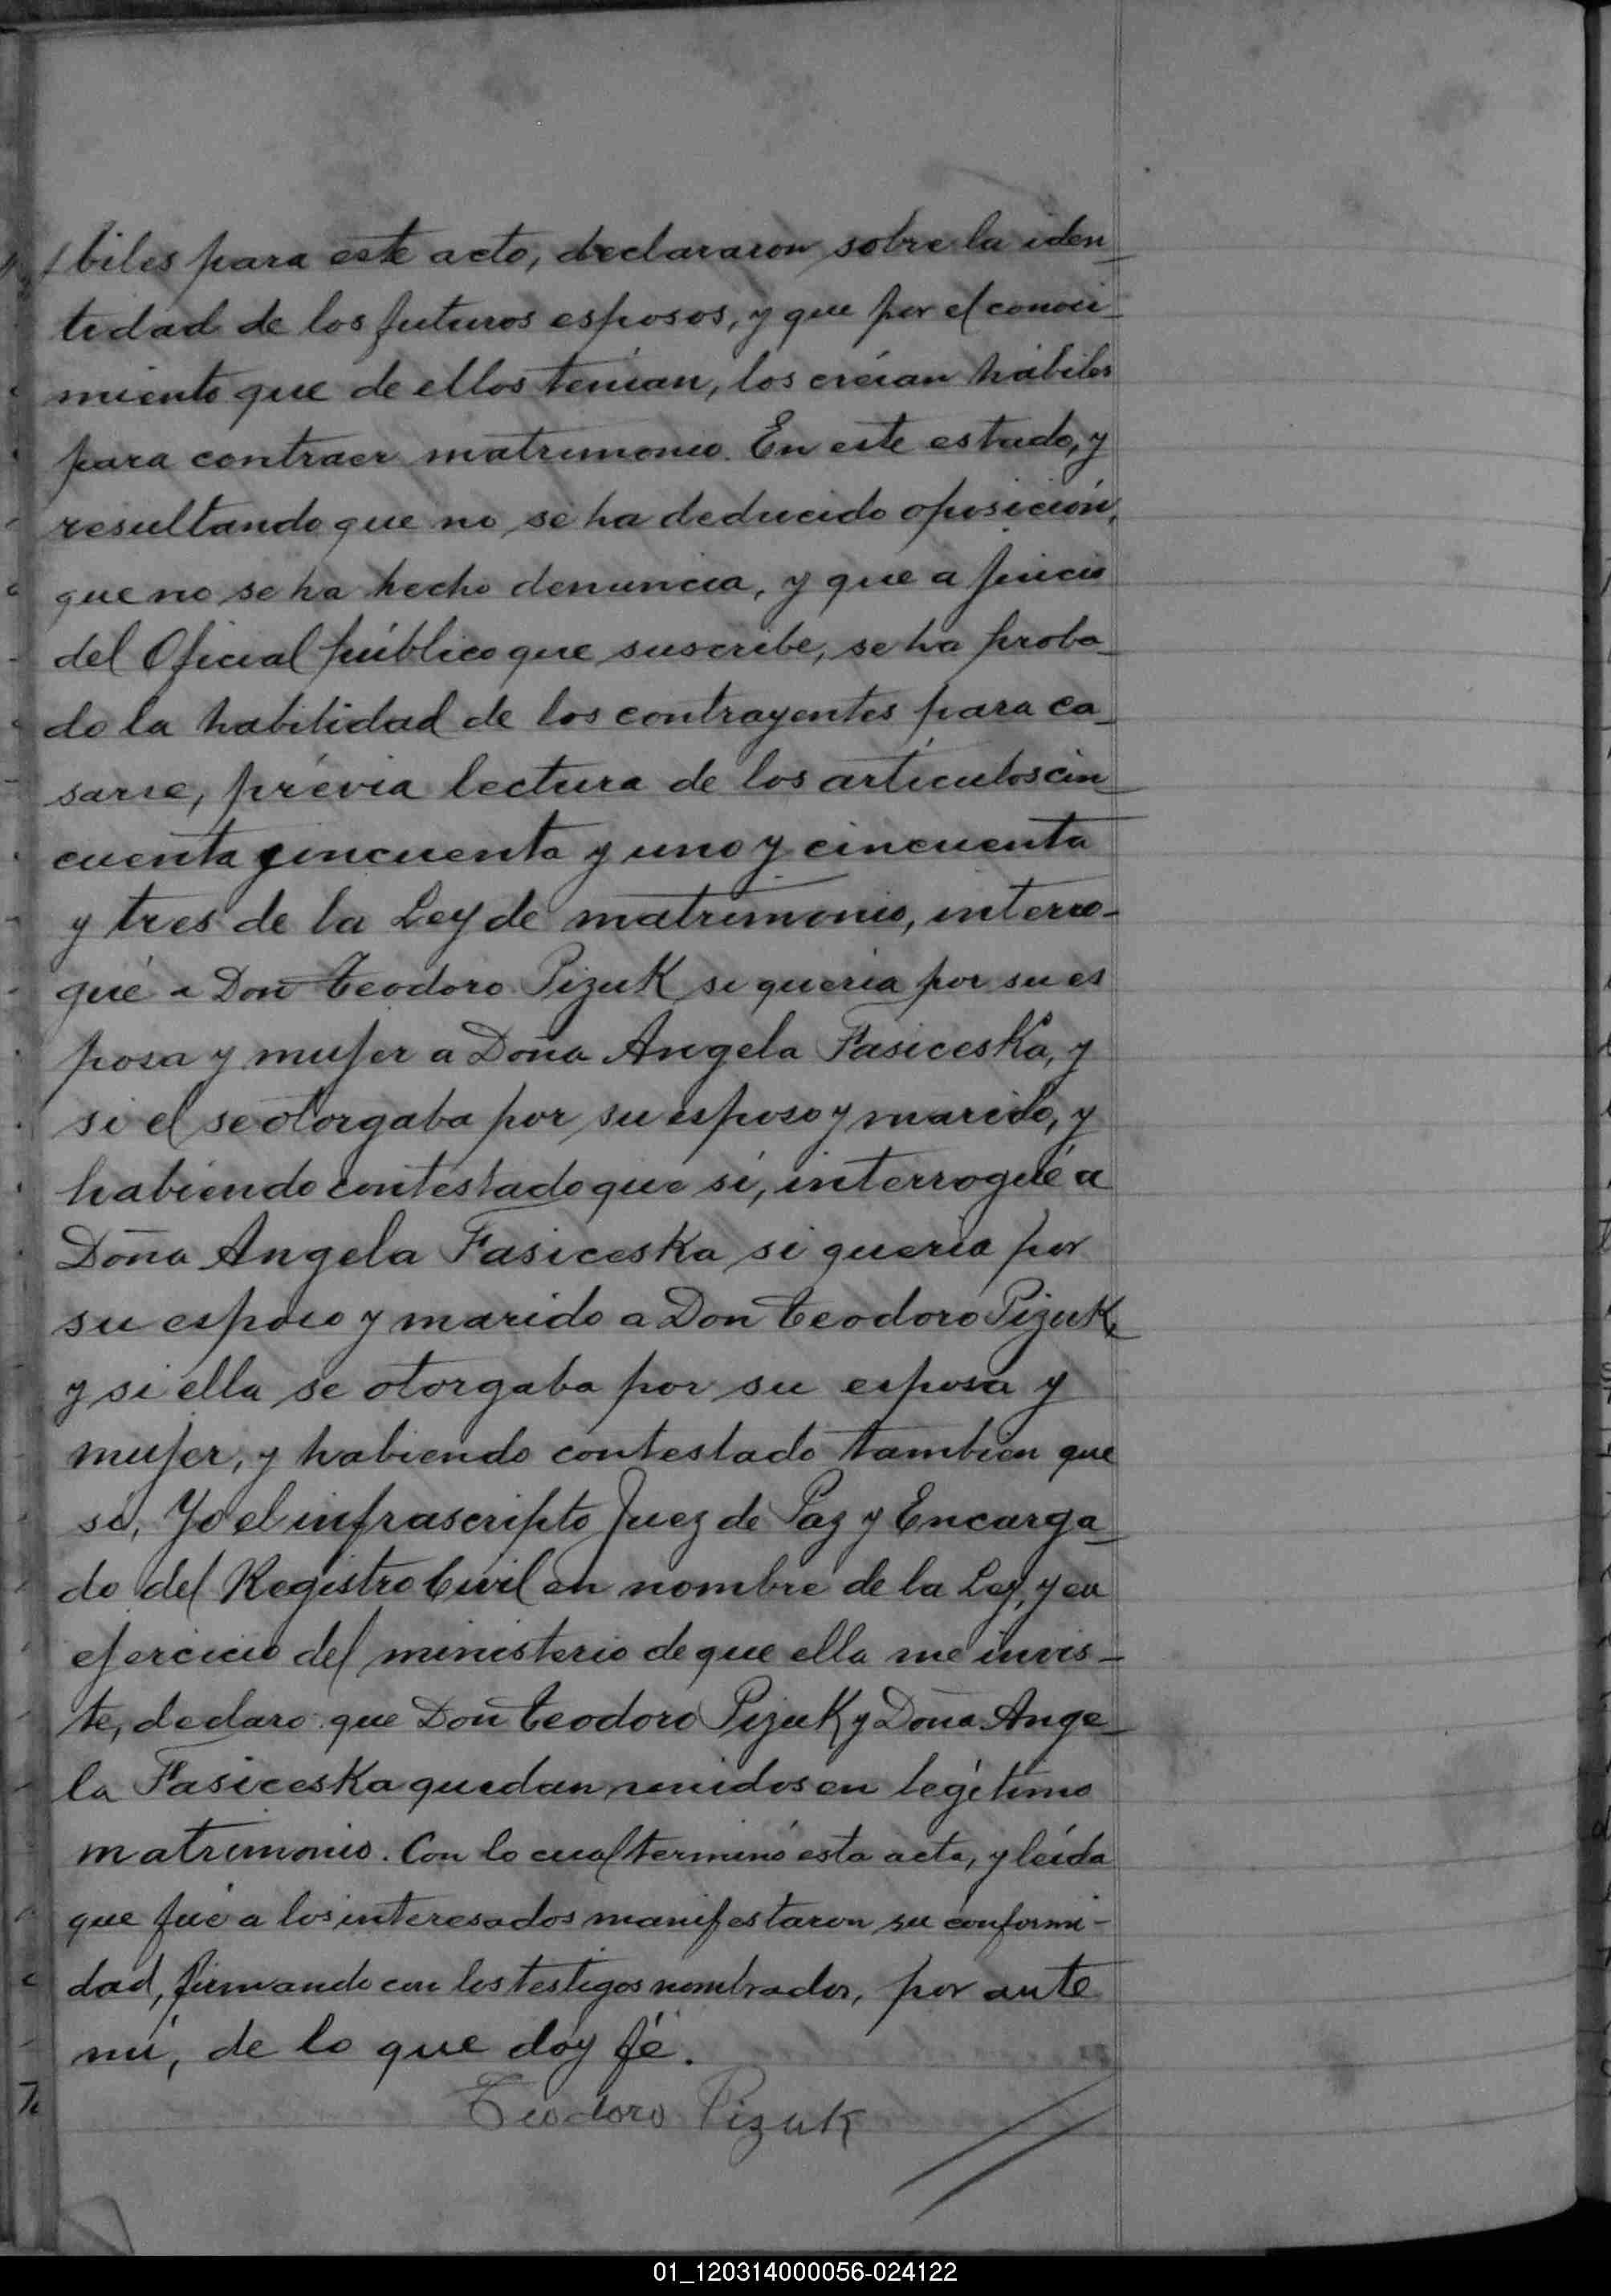 biles para este acto, declararon sobre la iden_
tidad de los futuros esposos, y que por el conoci_
miento que de ellos tenían, los creían hábiles
para contraer matrimonio. En este estado, y
resultando que no se ha deducido oposición,
que no se ha hecho denuncia, y que a juicio
del Oficial público que suscribe, se ha proba_
do la habilidad de los contrayentes para ca_
sarse, prévia lectura de los artículos cin_
cuenta cincuenta y uno y cincuenta
y tres de la Ley de matrimonio, interro-
gué a Don Teodoro Pizuk si quería por su es
posa y mujer a Doña Angela Fasiceska, y
si el se otorgaba por su esposo y marido, y
habiendo contestado que sí, interrogué a
Doña Angela Fasiceska si quería por
su esposo y marido a Don Teodoro Pizuk,
y si ella se otorgaba por su esposa y
mujer, y habiendo contestado tambien que
sí, Yo el infrascripto Juez de Paz y Encarga_
do del Registro Civil en nombre de la Ley, y en
ejercicio del ministerio de que ella me invis_
te, declaro que Don Teodoro Pizuk y Doña Ange_
la Fasiceska quedan unidos en legítimo
matrimonio. Con lo cual terminó esta acta, y leída
que fué a los interesados manifestaron su conformi-
dad, firmando con los testigos nombrados, por ante
mí, de lo que doy fé.
Teodoro Pizuk
01_120314000056-024122